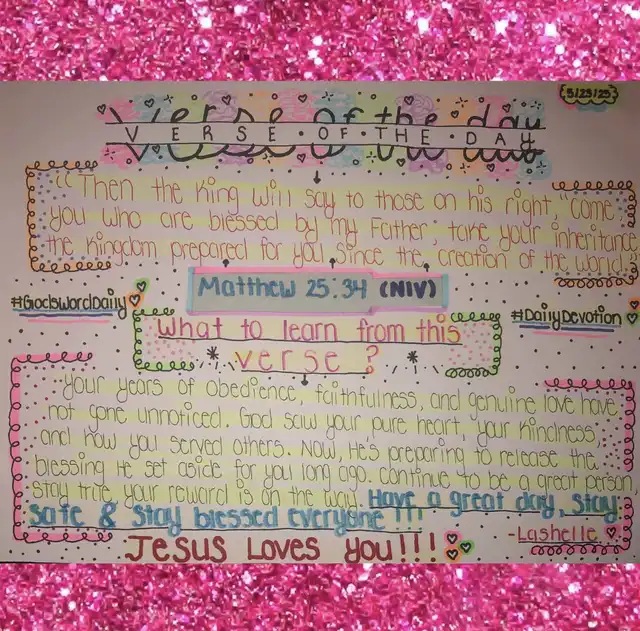 {5/25/25}
Verse of the day
VERSE • OF • THE • DAY
"Then the King will say to those on his right, "Come,
you who are blessed by my Father; take your inheritance,
the kingdom prepared for you since the creation of the world."
Matthew 25:34 (NIV)
#GodsWordDaily
#DailyDevotion
What to learn from this
verse?
Your years of obedience, faithfulness, and genuine love have
not gone unnoticed. God saw your pure heart, your kindness,
and how you served others. Now, He's preparing to release the
blessing He set aside for you long ago. Continue to be a great person,
stay true, your reward is on the way. Have a great day, stay
safe & stay blessed everyone!!!
-Lashelle
Jesus Loves you!!!